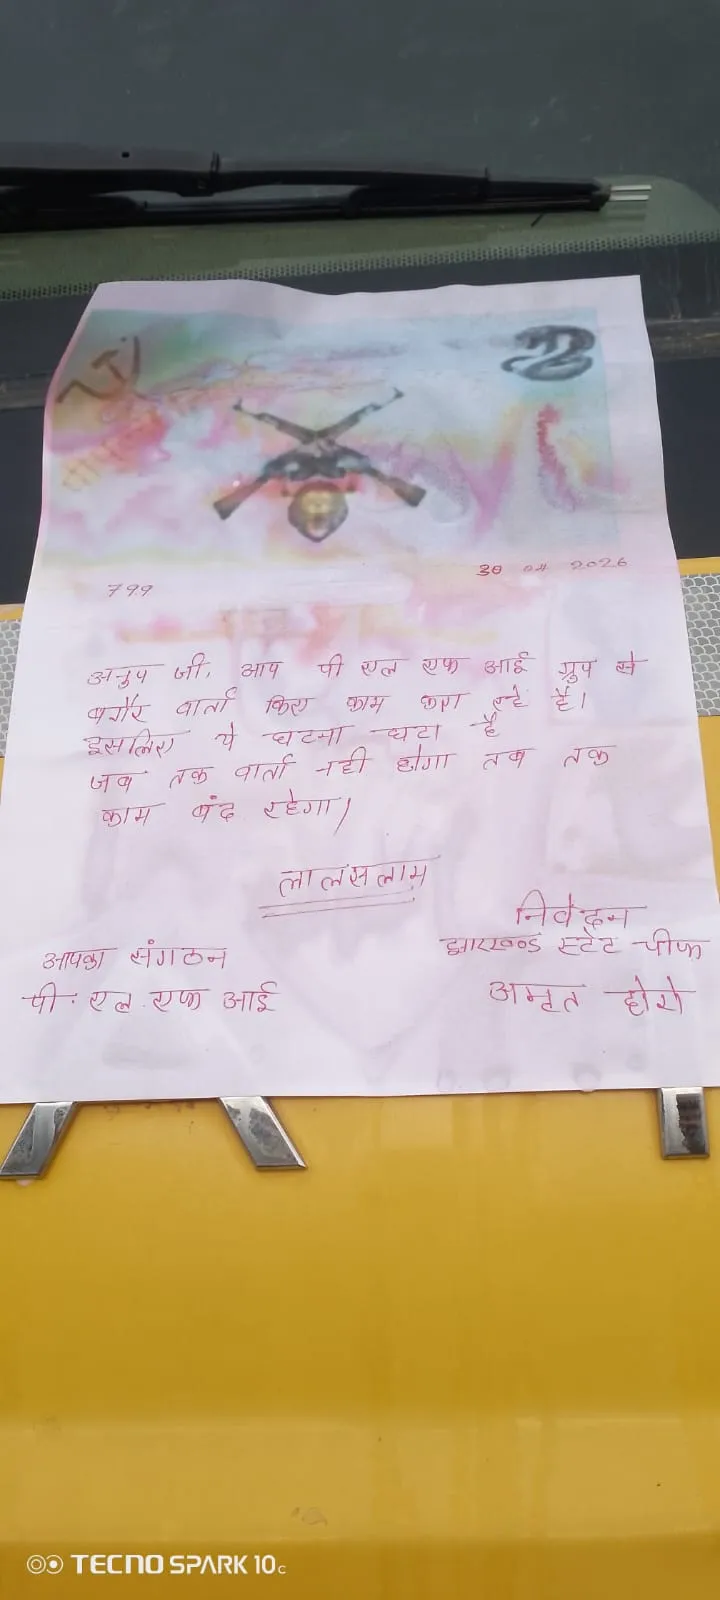 799
30 04 2026
अनुप जी, आप पी एल एफ आई ग्रुप से
बगैर वार्ता किए काम करा रहे है।
इसलिए ये घटना घटा है
जब तक वार्ता नही होगा तब तक
काम बंद रहेगा।
लालसलाम
निवेदन
झारखण्ड स्टेट चीफ
अमृत होरो
आपका संगठन
पी. एल. एफ आई
TECNO SPARK 10c